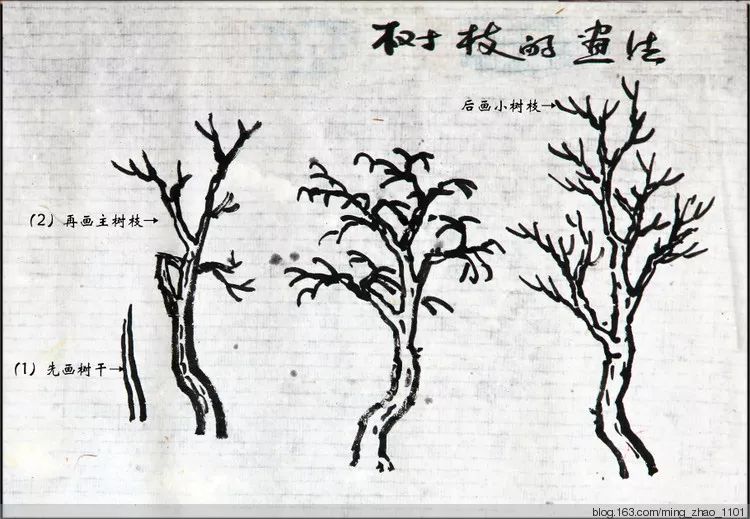 树枝的画法
后画小树枝→
(2) 再画主树枝→
(1) 先画树干→
blog.163.com/ming_zhao_1101